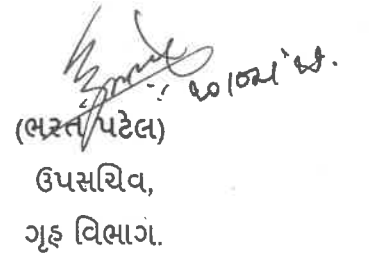 (ભરત પટેલ)
ઉપસચિવ,
ગૃહ વિભાગ.